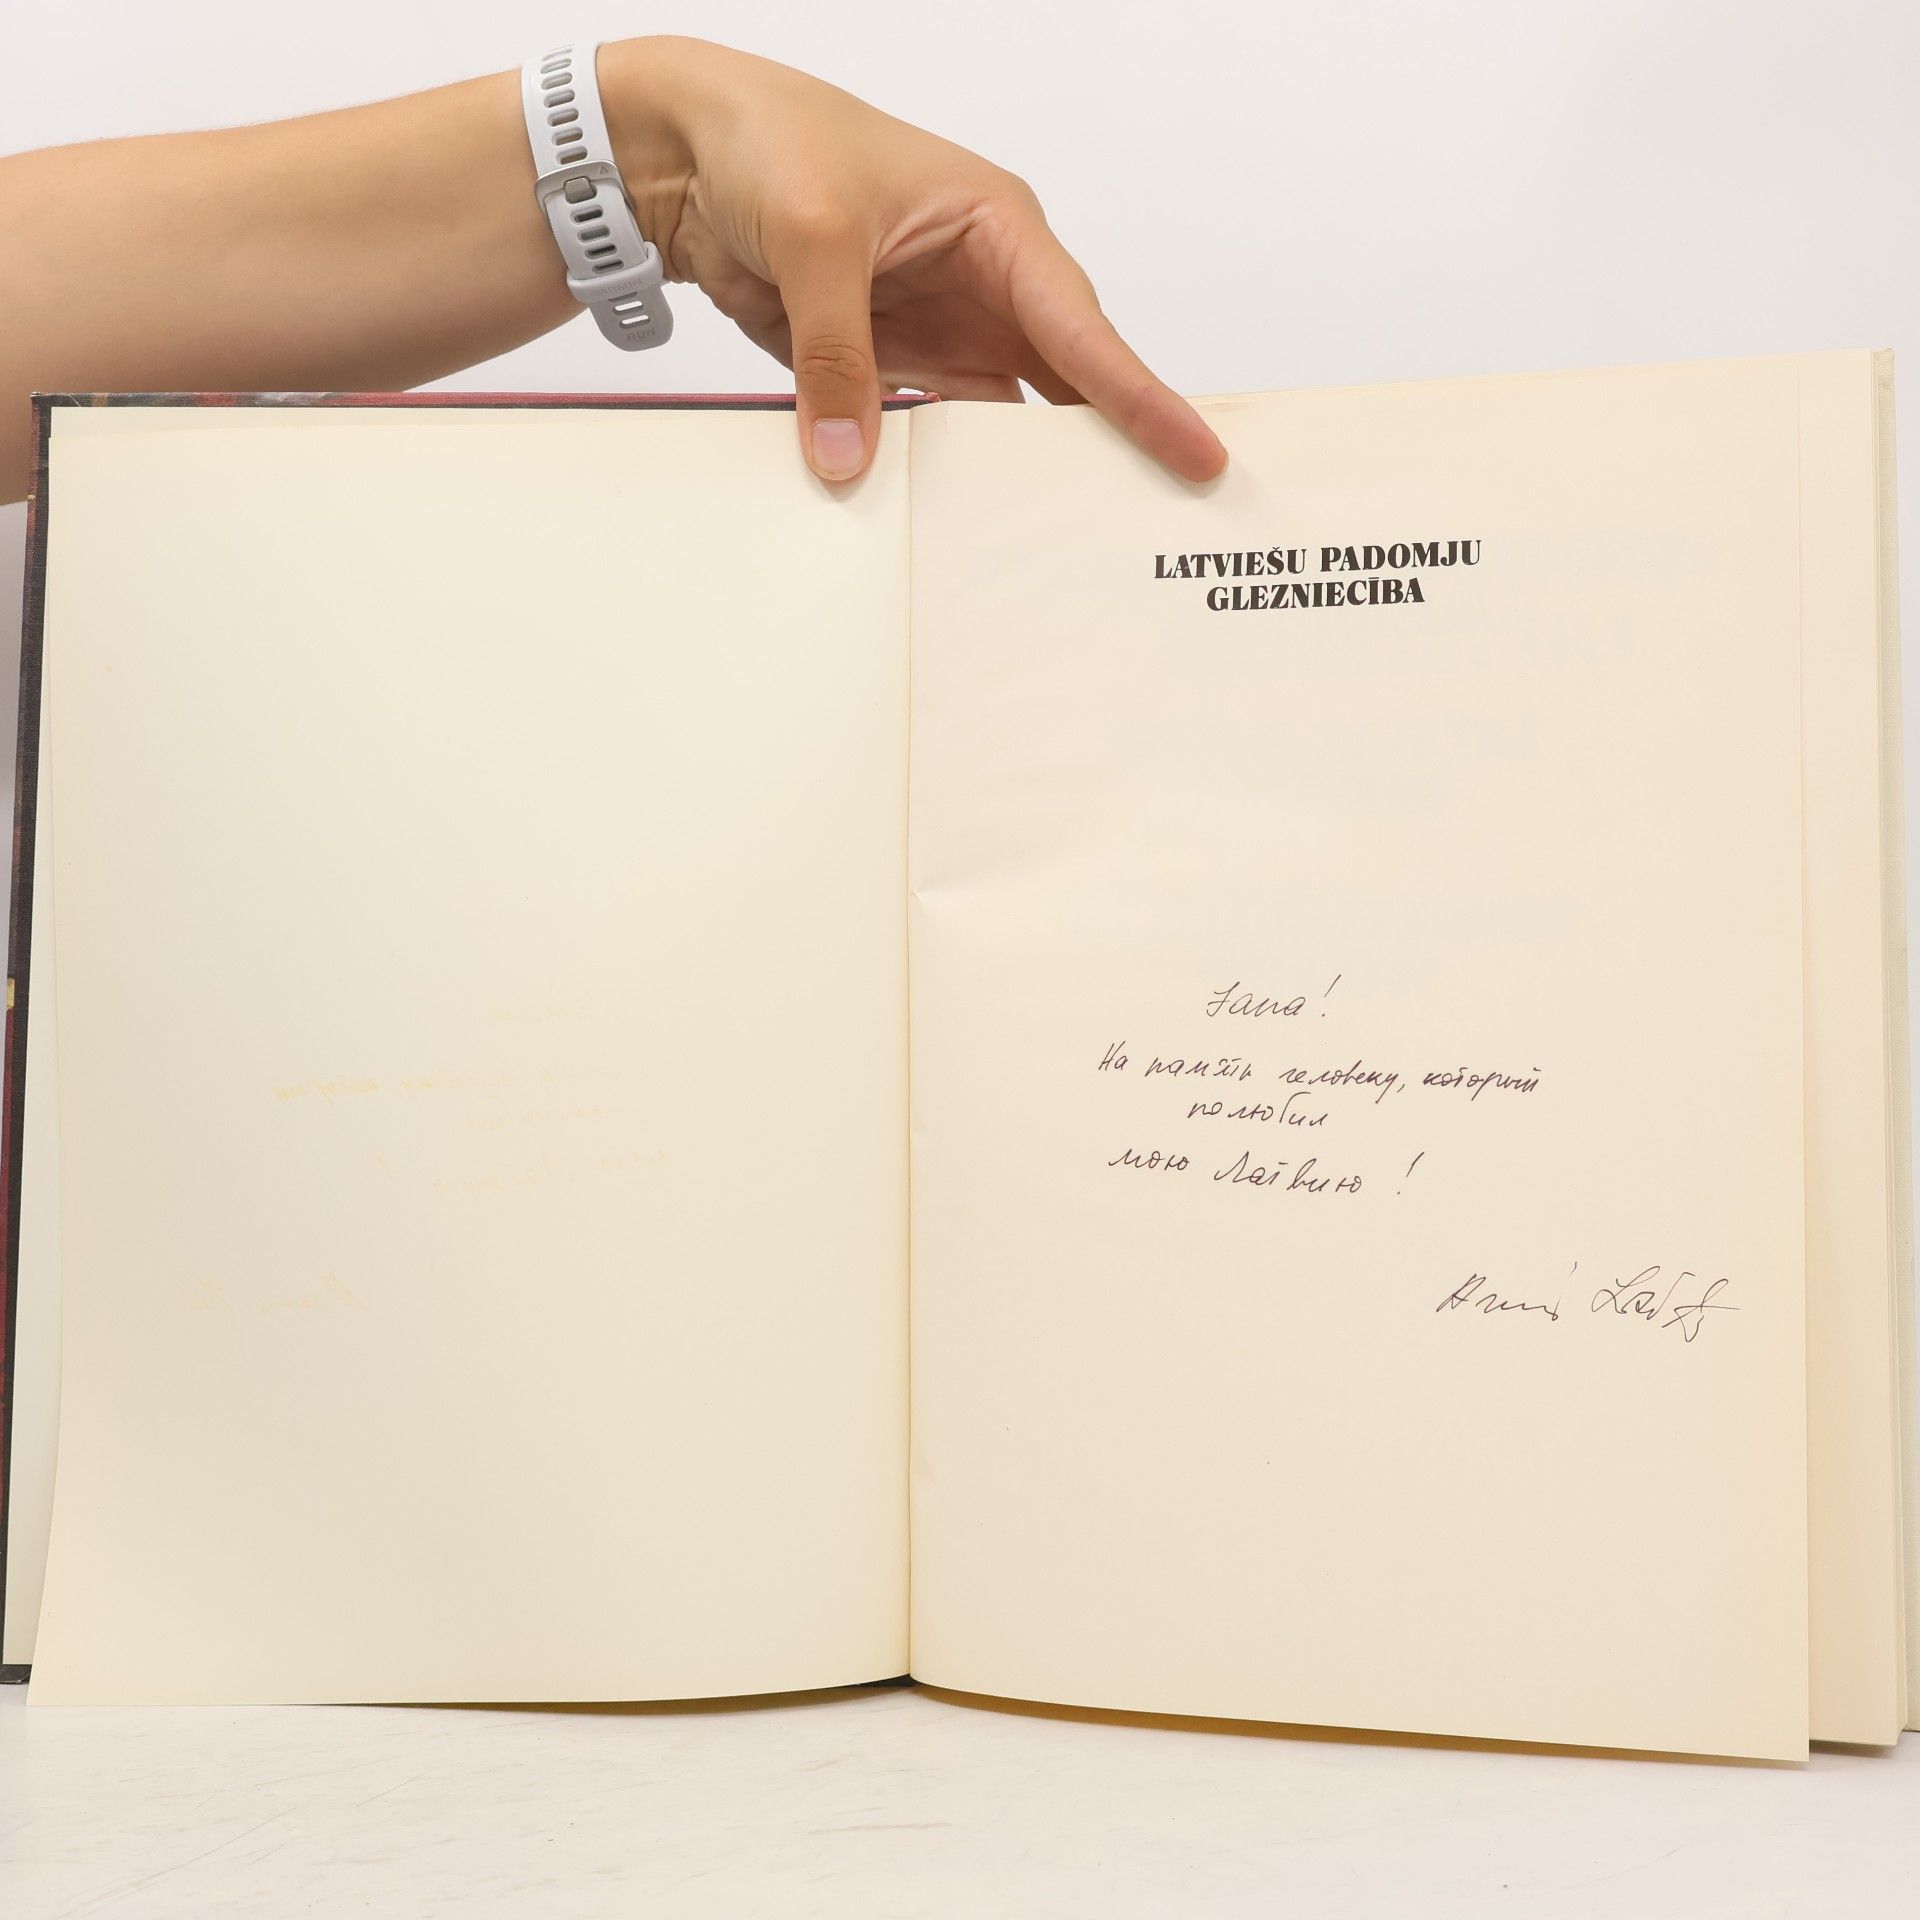 GARMIN
RUN
LATVIEŠU PADOMJU
GLEZNIECĪBA
Jana!
На память человеку, который
полюбил
мою Латвию!